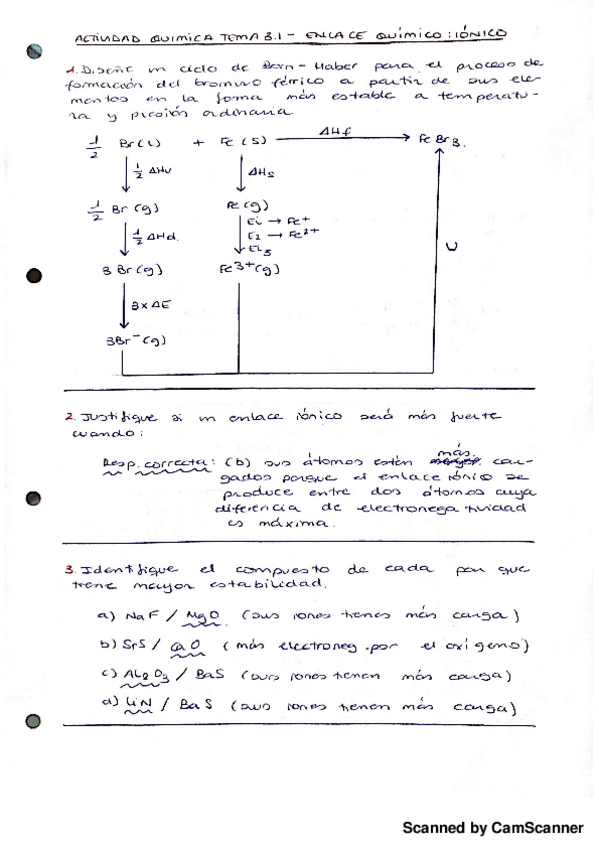 ACTIVIDAD QUIMICA TEMA 3.1 - ENLACE QUÍMICO: IÓNICO
1. Diseñe un ciclo de Born-Haber para el proceso de
formación del bromuro férrico a partir de sus ele-
mentos en la forma más estable a temperatu-
ra y presión ordinaria.
1/2 Br(l) + Fe(s) ΔHf → FeBr3.
1/2 ΔHv ΔHs
1/2 Br(g) Fe(g)
Ei → Fe+
1/2 ΔHd. E2 → Fe2+
Ei3
3Br(g) Fe3+(g)
U
3xΔE
3Br-(g)
2. Justifique si un enlace iónico será más fuerte
cuando:
más.
Resp. correcta: (b) sus átomos estén car-
gados porque el enlace iónico se
produce entre dos átomos cuya
diferencia de electronegatividad
es máxima.
3. Identifique el compuesto de cada par que
tiene mayor estabilidad.
a) NaF / MgO (sus iones tienen más carga)
b) SrS / CaO (más electroneg. por el oxígeno)
c) Al2O3 / BaS (sus iones tienen más carga)
d) LiN / BaS (sus iones tienen más carga)
Scanned by CamScanner